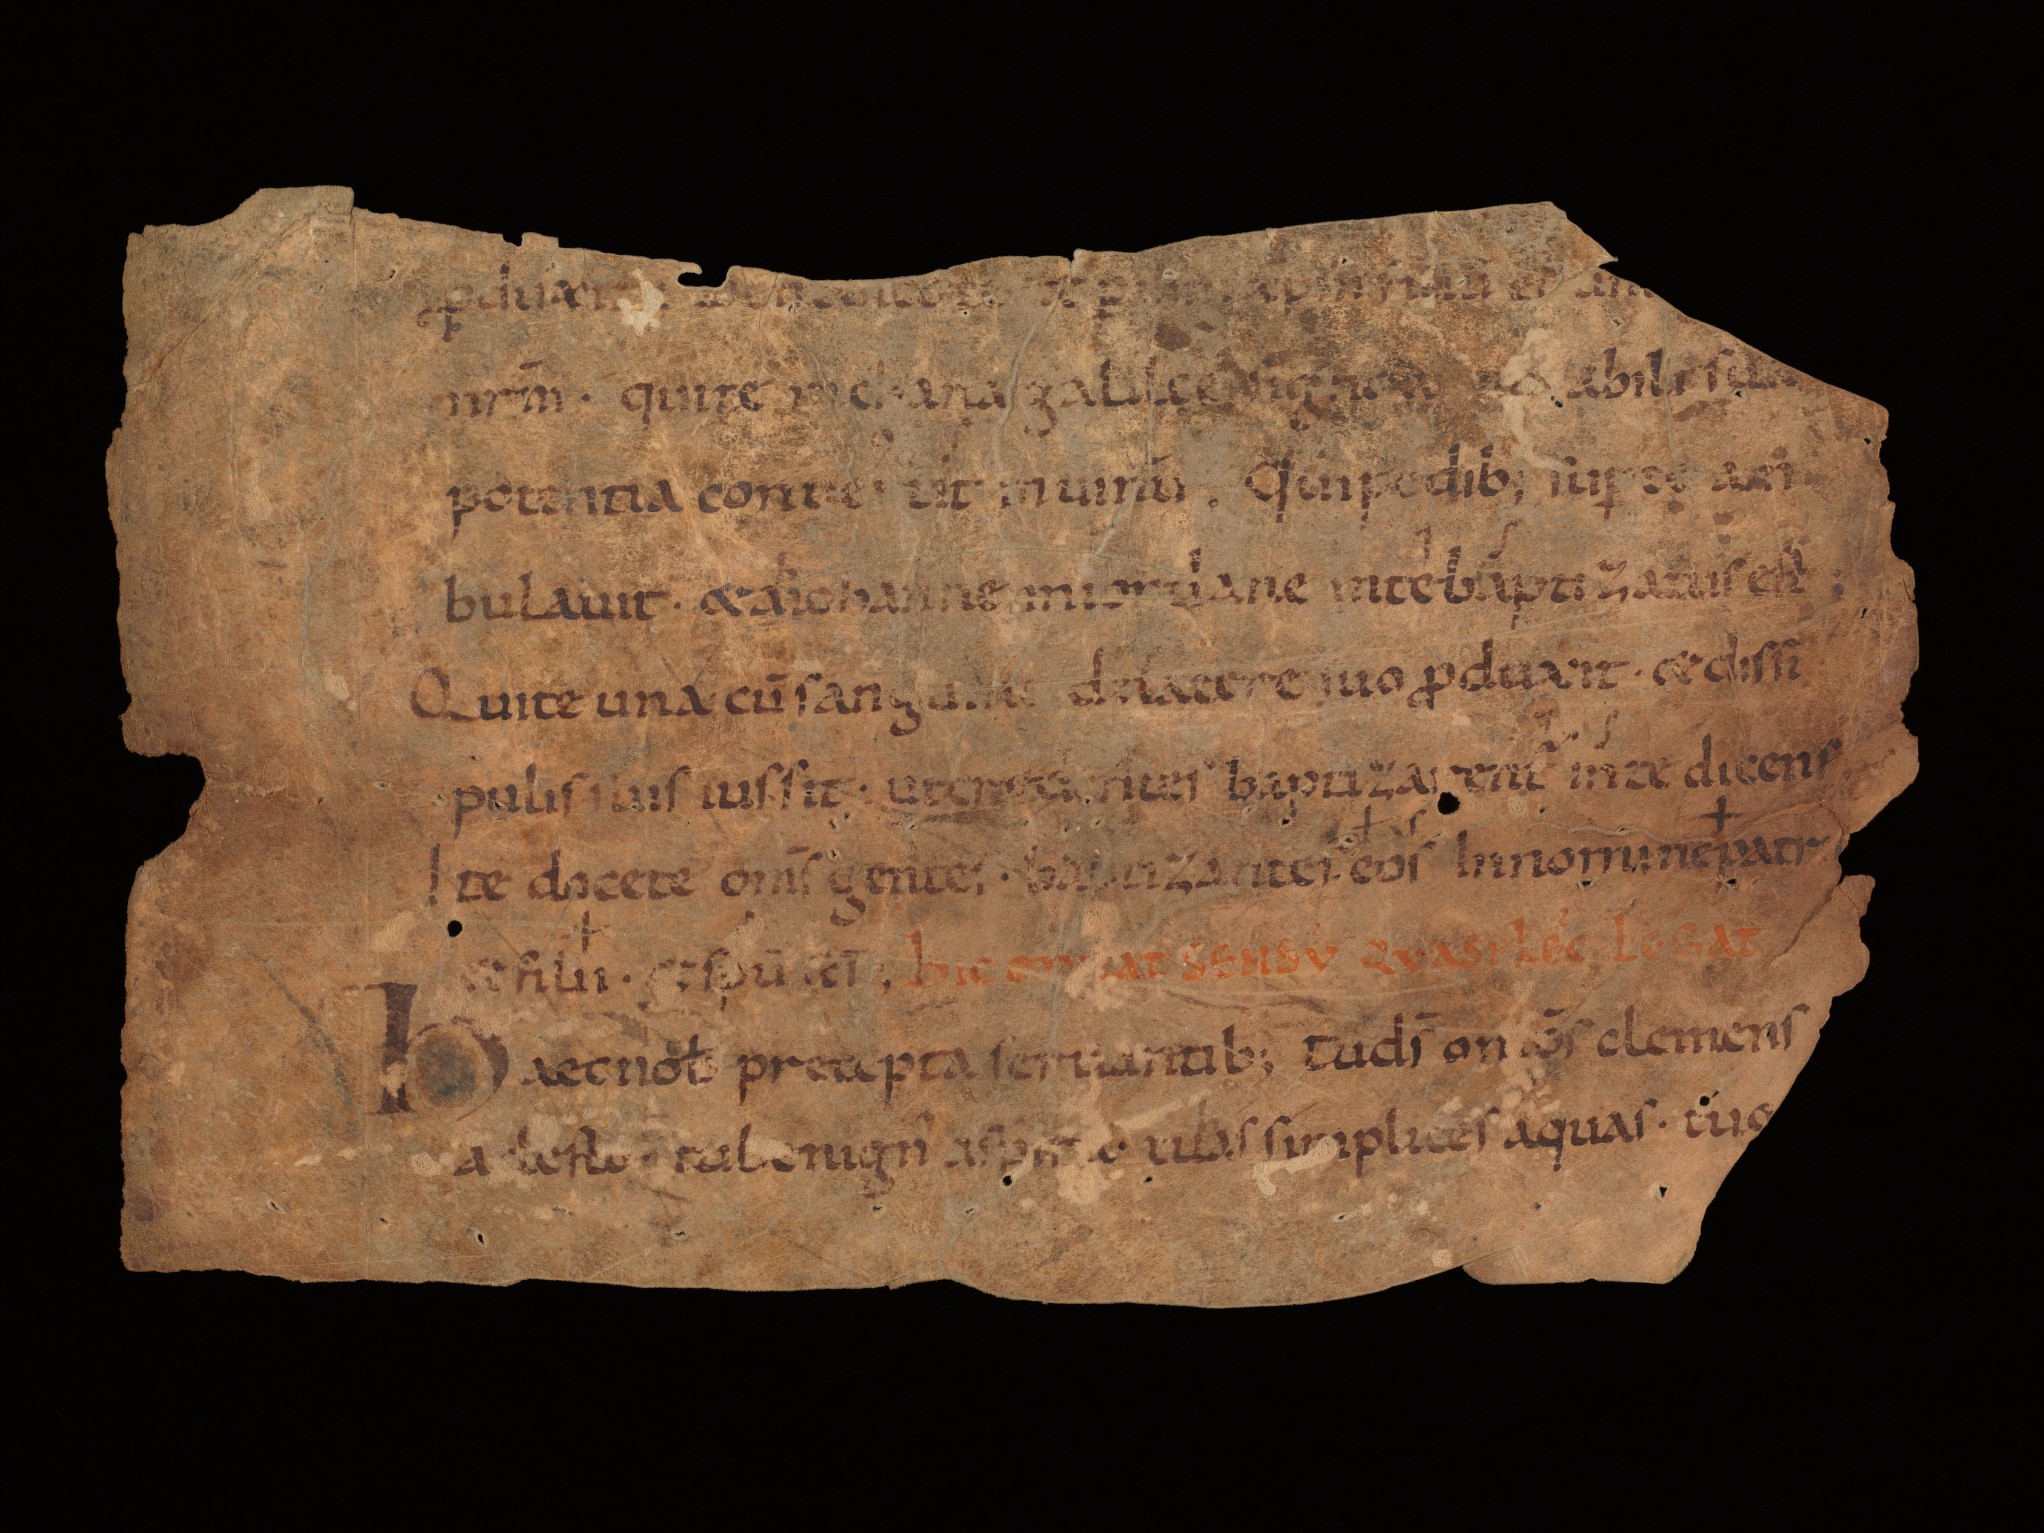 ꝓduxit benedico te et p
nr̄m · qui te in chana galileę signo abili sua
potentia conuertit in uinū . Qui pedib; sup te am
bulauit · & a iohanne in iordane in te baptizatus est ;
Qui te una cū sanguine de latere suo ꝓduxit · & disci
pulis suis iussit · ut credentes baptizarent in te dicens
Ite docete om̄s gentes · baptizantes eos In nomine patr
& filii · & sp̄u sc̄i ; hic mutat sensū quasi lec̄ legat
Haec nob̄ precepta seruantib; tu ds̄ om̄s clemens
adesto · tu benign' aspira · tu has simplices aquas · tuo